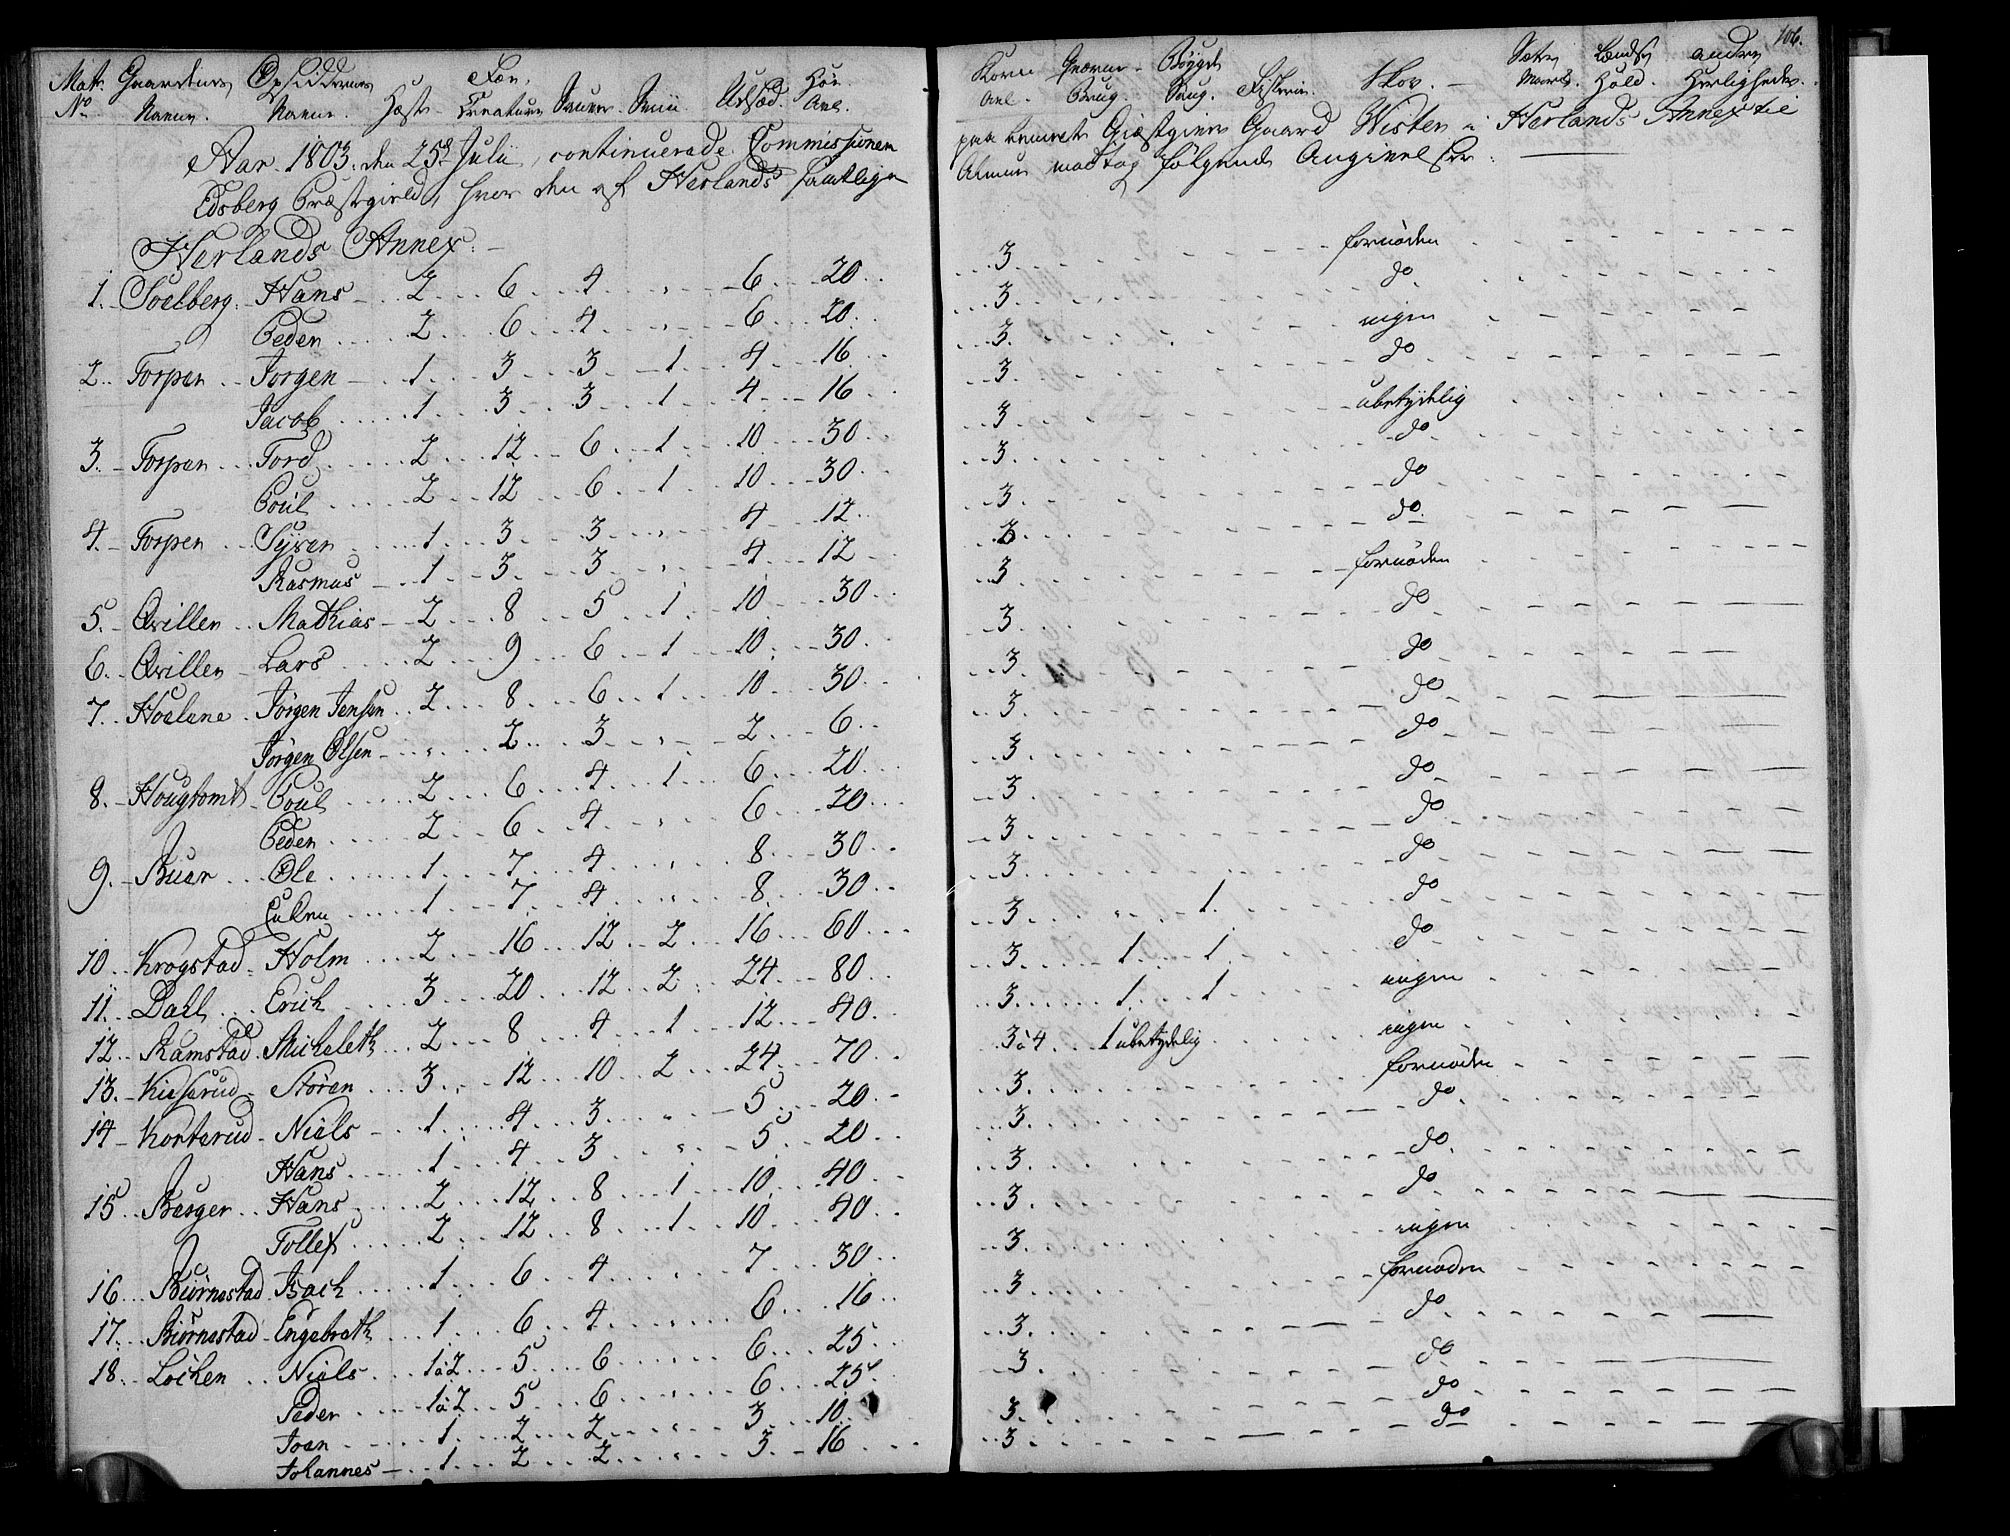 106.
Mat: Gaardenes Opsiddernes Fæe Korn Qværne Bøygde Sæter Lændse andre
No Navne. Navne. Hæste Creature Sauer Sviin Udsæd. Høe Avl. Avl. Brug. Saug. Fiskerie. Skov. March. Hold. Herligheder.
Aar 1803. den 25de Julii, continuerede Commissionen paa bemeldte Giæstgiver Gaard Wister i Herlands Annex til
Edsberg Præstegield, hvor den af Herlands samtlige Almue modtog følgende Angivelser:
Herlands Annex:
1. Soelberg Hans 2 6 4 " 6 20 3 fornøden
Peder 2 6 4 " 6 20 3 do
2. Torper Jørgen 1 3 3 1 4 16 3 ingen
Jacob 1 3 3 1 4 16 3 do
3. Torper Tord 2 12 6 1 10 30 3 ubetydelig
Poul 2 12 6 1 10 30 3 do
4. Torper Syver 1 3 3 " 4 12 3 do
Rasmus 1 3 3 " 4 12 3 do
5. Qvillen Mathias 2 8 5 1 10 30 3 fornøden
6. Qvillen Lars 2 9 6 1 10 30 3 do
7. Hoelene Jørgen Jensen 2 8 6 1 10 30 3 do
Jørgen Olsen " 2 3 " 2 6 3 do
8. Hougtomt Poul 2 6 4 1 6 20 3 do
Peder 2 6 4 " 6 20 3 do
9. Buer Ole 1 7 4 " 8 30 3 do
1 7 4 " 8 30 3 do
10. Krogstad Holm 2 16 12 2 16 60 3 " 1 do
11. Dahl Erich 3 20 12 2 24 80 3 1 1 do
12. Ramstad Micheleth 2 8 4 1 12 40 3 1 1 ingen
13. Kiesserud Støren 3 12 10 2 24 70 3 à 4 1 ubetydelig ingen
14. Korterud Niels 1 4 3 " 5 20 3 fornøden
Hans 1 4 3 " 5 20 3 do
15. Berger Hans 2 12 8 1 10 40 3 do
Tollef 2 12 8 1 10 40 3 do
16. Biørnestad Isach 1 6 4 " 7 30 3 ingen
17. Biørnestad Engebreth 1 6 4 " 6 16 3 fornøden
18. Løchen Niels 1 à 2 5 6 " 6 25 3 do
Peder 1 à 2 5 6 " 6 25 3 do
Joen 1 2 2 " 3 10 3 do
Johannes 1 2 2 " 3 16 3 do